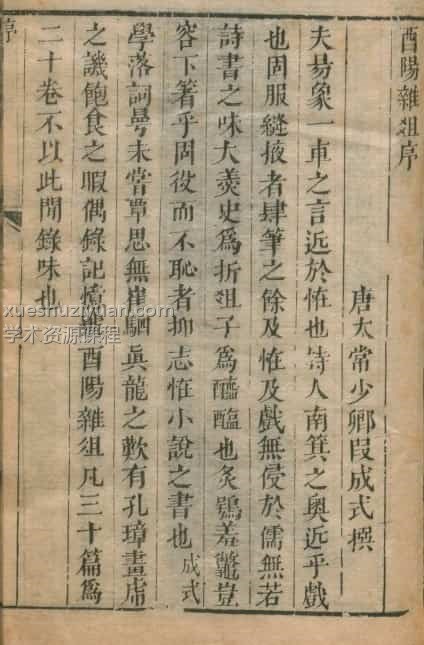 酉陽雜俎序
唐太常少卿段成式撰
夫易象一車之言近於恠也詩人南箕之奧近乎戲
也固服縫掖者肆筆之餘及恠及戲無侵於儒無若
詩書之味大羮史爲折俎子爲醯醢也炙鴞羞鼈豈
容下箸乎固役而不恥者抑志恠小說之書也成式
學落詞曼未嘗覃思無崔駰眞龍之歎有孔璋畫虎
之譏飽食之暇偶錄記憶號酉陽雜俎凡三十篇爲
二十卷不以此間錄味也
序
xueshuziyuan.com
学术资源课程